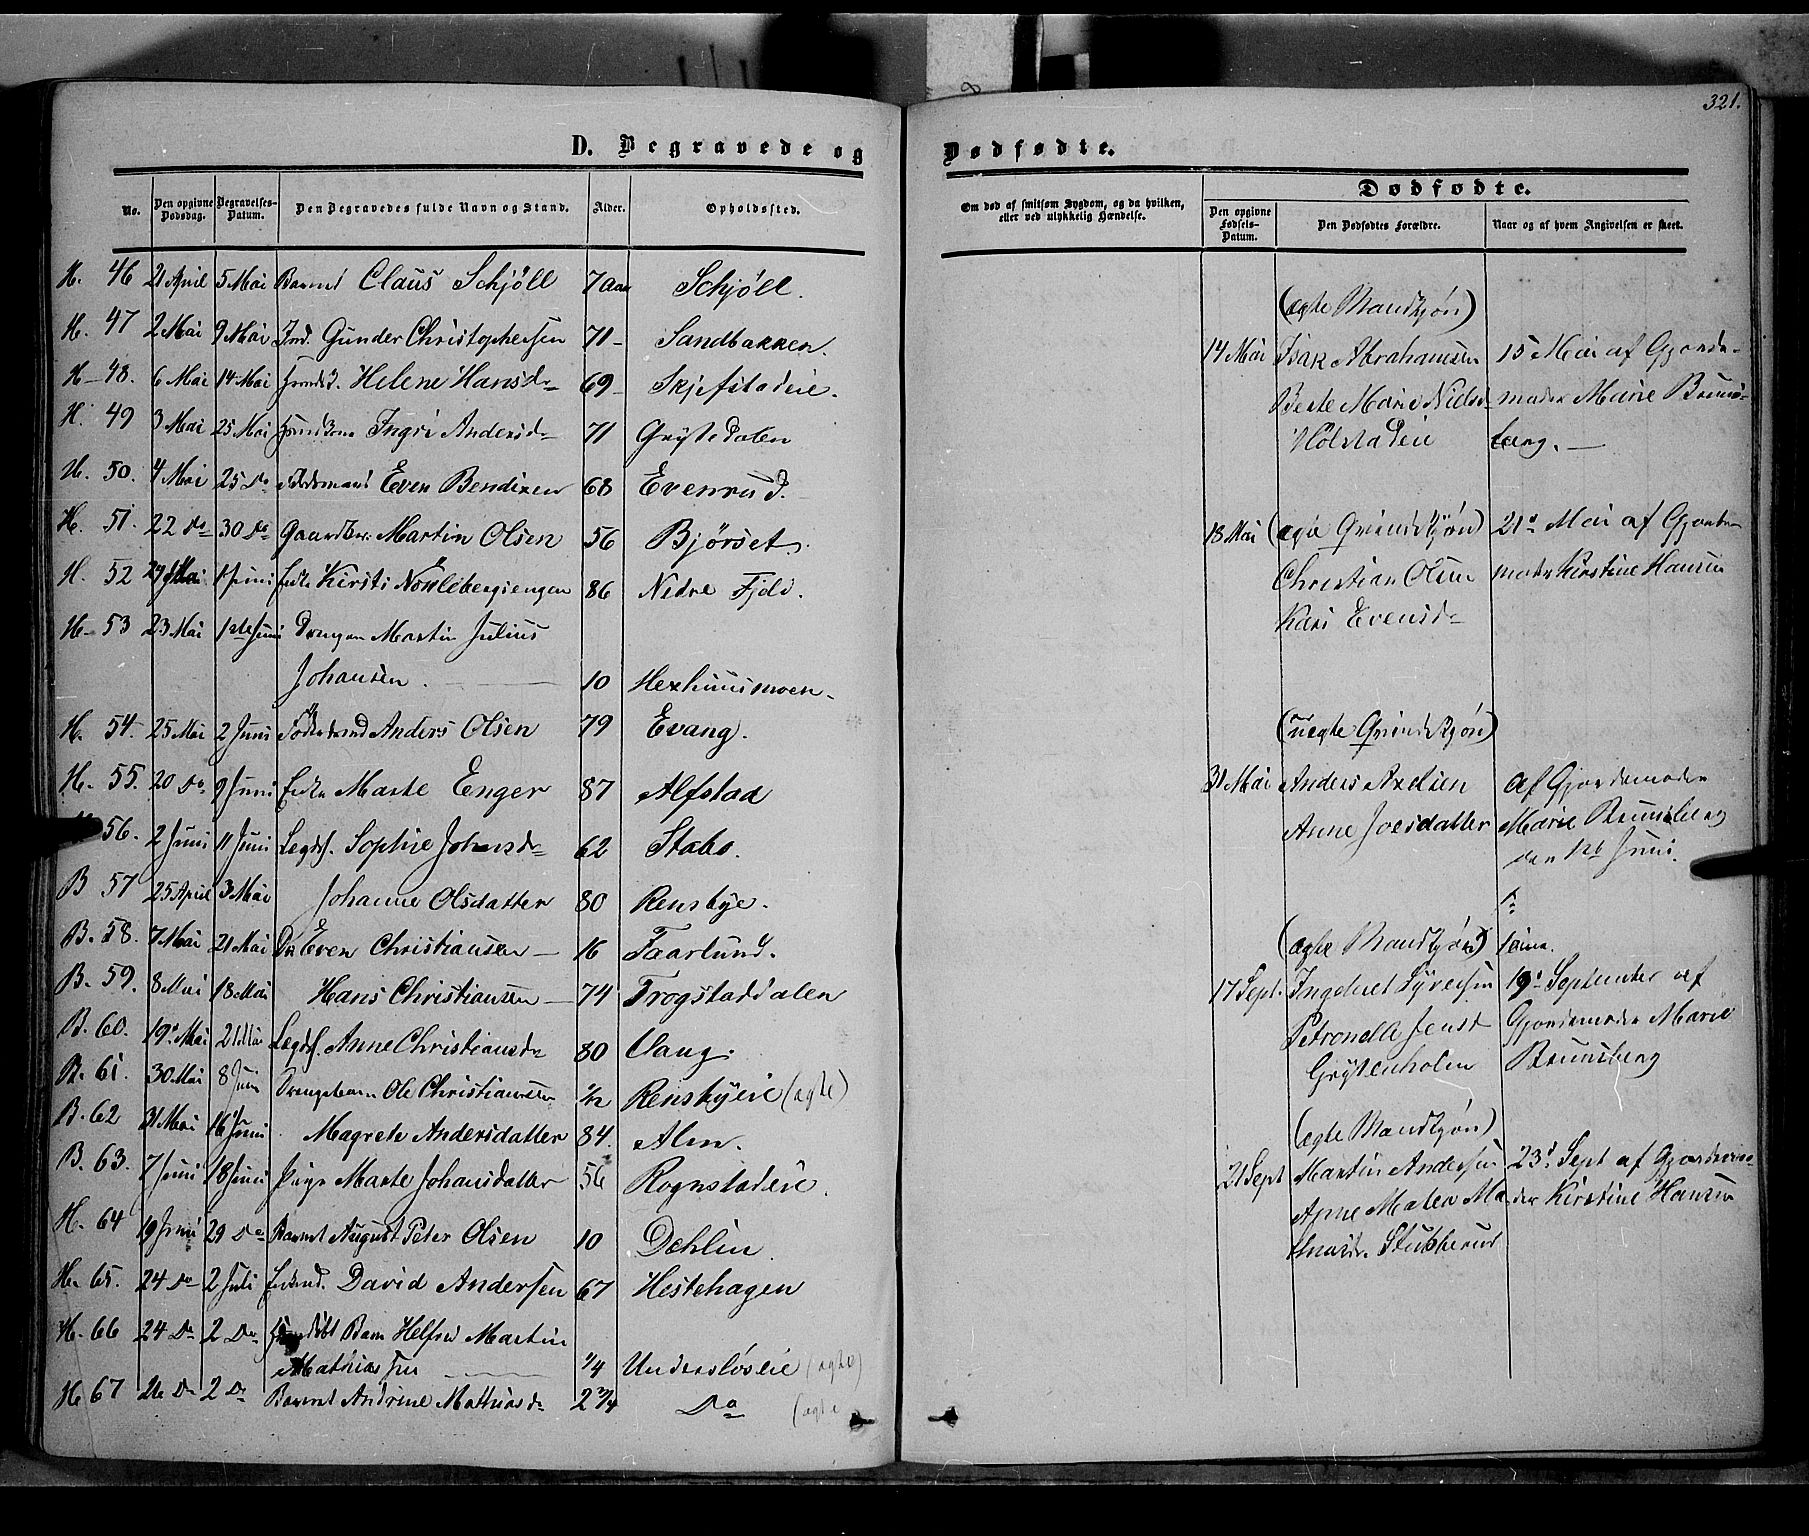 321.
D. Begravede og Dødfødte.
No.
Den opgivne Dødsdag.
Begravelses-Datum.
Den Begravedes fulde Navn og Stand.
Alder.
Opholdssted.
Om død af smitsom Sygdom, og da hvilken, eller ved ulykkelig Hændelse.
Dødfødte.
Den opgivne Fødsels-Datum.
Den Dødfødtes Forældre.
Naar og af hvem Angivelsen er skeet.
H. 46 21 April 5 Mai Barnet Claus Schjöll 7 Aar Schjöll.
H. 47 2 Mai 9 Mai Ind. Gunder Christophersen 71 - Sandbakken.
H - 48. 6 Mai 14 Mai Helene Hansd 69 - Skjefstadeie.
H. 49 3 Mai 25 Mai Ingri Andersd 71 Grytedalen
H. 50. 4 Mai 25 Do Even Bendixen 68 Evenrud.
H. 51. 22 Do 30 Do Gaardbr. Martin Olsen 56 Bjørset.
H. 52 29 Mai 1 Juni Kirsti 86 Nedre Fjeld.
H. 53 23 Mai 1ste Juni Drengen Martin Julius
Johansen. 10 Hexhuusmoen.
H. 54. 25 Mai 2 Juni Anders Olsen 79 Evang.
H. 55. 20 Do 9 Juni Enke Marte Enger 87 Alfstad
56. 2 Juni 11 Juni Legdsl. Sophie Johnsd 62 Stabo.
B 57 25 April 3 Mai Johanne Olsdatter 80 Rensbye.
B. 58. 7 Mai 21 Mai Even Christiansen - 16 Faarlund.
B. 59. 8 Mai 18 Mai Hans Christiansen - 74 Trogstaddalen
B. 60. 19 Mai 21 Mai Legdsl. Anne Christiansd 80 Vang.
B. 61. 30 Mai 8 Juni Drengebarn Ole Christiansen 1/12 Rensbyeie (ægte)
B. 62 31 Mai 16 Juni Magrete Andersdatter 84. Alm.
B. 63. 7 Juni 18 Juni Pige Marte Johansdatter 56 Rognstadeie.
H. 64 19 Juni 29 Do Barnet August Peter Olsen 10 Dehlin.
H. 65. 24 Do 2 Juli David Andersen 67 Hestehagen
H. 66 24 Do 2 Do Barn Helfred Martin
Mathiassen 1/4 Underslöseie (ægte)
H. 67 26 Do 2 Do Barnet Andrine Mathiasd 2 3/4 Do (ægte
(ægte Mandkjøn)
14 Mai Isak Abrahamsen 15 Mai af Gjorde-
Berte Marie Nielsd moder Marie Bruns-
Holstadeie berg. -
18 Mai (ægte Qvindekjøn) 21 Mai af Gjorde-
Christian Olsen moder Kirstine Hansen
Kari Evensd
(uægte Qvindekjøn)
31 Mai Anders Axelsen af Gjordemoder
Anne Joesdatter Marie Brunsberg
den 1ste Juni.
(ægte Mandkjøn)
17 Sept. Ingebret Syversen 19 September af
Petronelle Jensd Gjordemoder Marie
Grytenholen Brunsberg
(ægte Mandkjøn)
21 Sept Martin Andersen 23 Sept af Gjordemo-
Anne Malen Ma der Kirstine Hansen
Stubberud